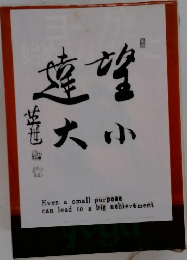 望小
達大
英世
Even a small purpose
can lead to a big achievement